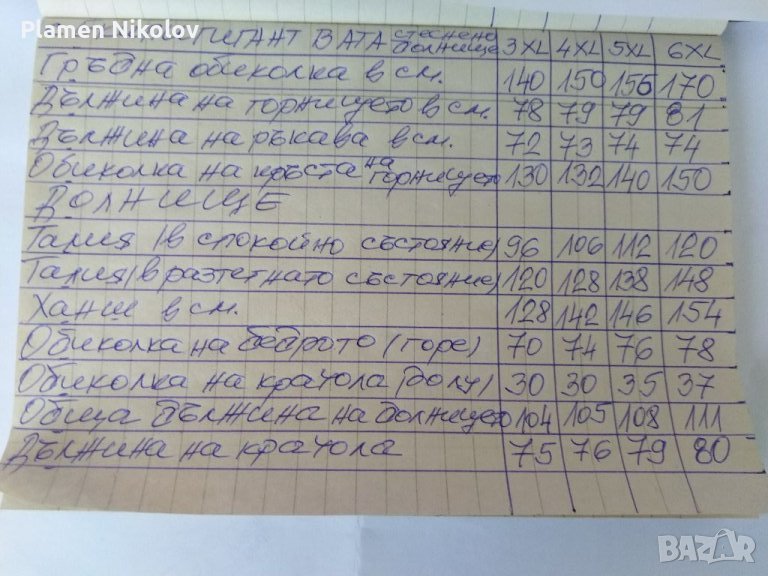 Plamen Nikolov
ГИГАНТ ВАТА стеснено долнище 3XL 4XL 5XL 6XL
Гръдна обиколка в см. 140 150 156 170
Дължина на горнището в см. 78 79 79 81
Дължина на ръкава в см. 72 73 74 74
Обиколка на кръста на горнището 130 132 140 150
ДОЛНИЩЕ
Талия /в спокойно състояние/ 96 106 112 120
Талия /в разтегнато състояние/ 120 128 138 148
Ханш в см. 128 142 146 154
Обиколка на бедрото (горе) 70 74 76 78
Обиколка на крачола /долу/ 30 30 35 37
Обща дължина на долнището 104 105 108 111
Дължина на крачола 75 76 79 80
BAZAR